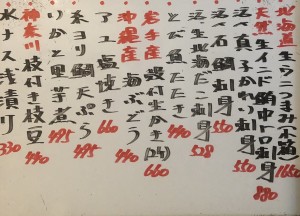 北海道 生ウニつまみ(小箱) 1650
天然 生インド鮪中トロ刺身 880
活〆真子かれい刺身 550
活〆北海だこ刺身 550
活〆生ほたて刺身 528
とび魚たたき 440
岩手産 殻付生かき(2ヶ) 660
沖縄産 海ぶどう 440
アユ塩焼き 660
糸ヨリ鯛天ぷら 495
いかと里芋煮 495
神奈川 枝付き枝豆 440
水ナス浅漬り 330